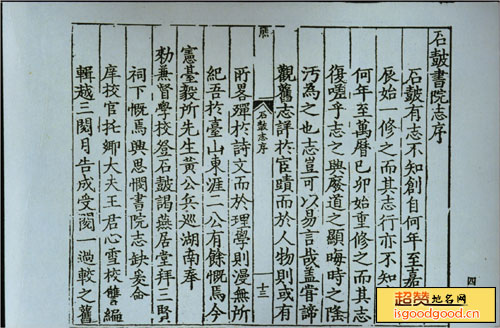 石鼓書院志序
石鼓有志不知創自何年至嘉
辰始一修之而其志行亦不知
何年至萬曆已夘始重修之而其志
復嗟乎志之興廢道之顯晦時之隆
汚為之也志豈可以易言哉盖嘗諦
觀舊志詳於官蹟而於人物則或有
所畧殫於詩文而於理學則漫無所
紀吾於臺山東涯二公有餘慨焉今
憲基毅所先生黃公兵巡湖南奉
勑兼督學校登石鼓謁燕居堂拜三賢
祠下慨焉興思憫書院志缺爰俞
庠校官托鄉大夫王君心雪校讐編
輯越三閱月告成受閱一過較之舊
石鼓志序
十三
四
超赞地名网
isgoodgood.com